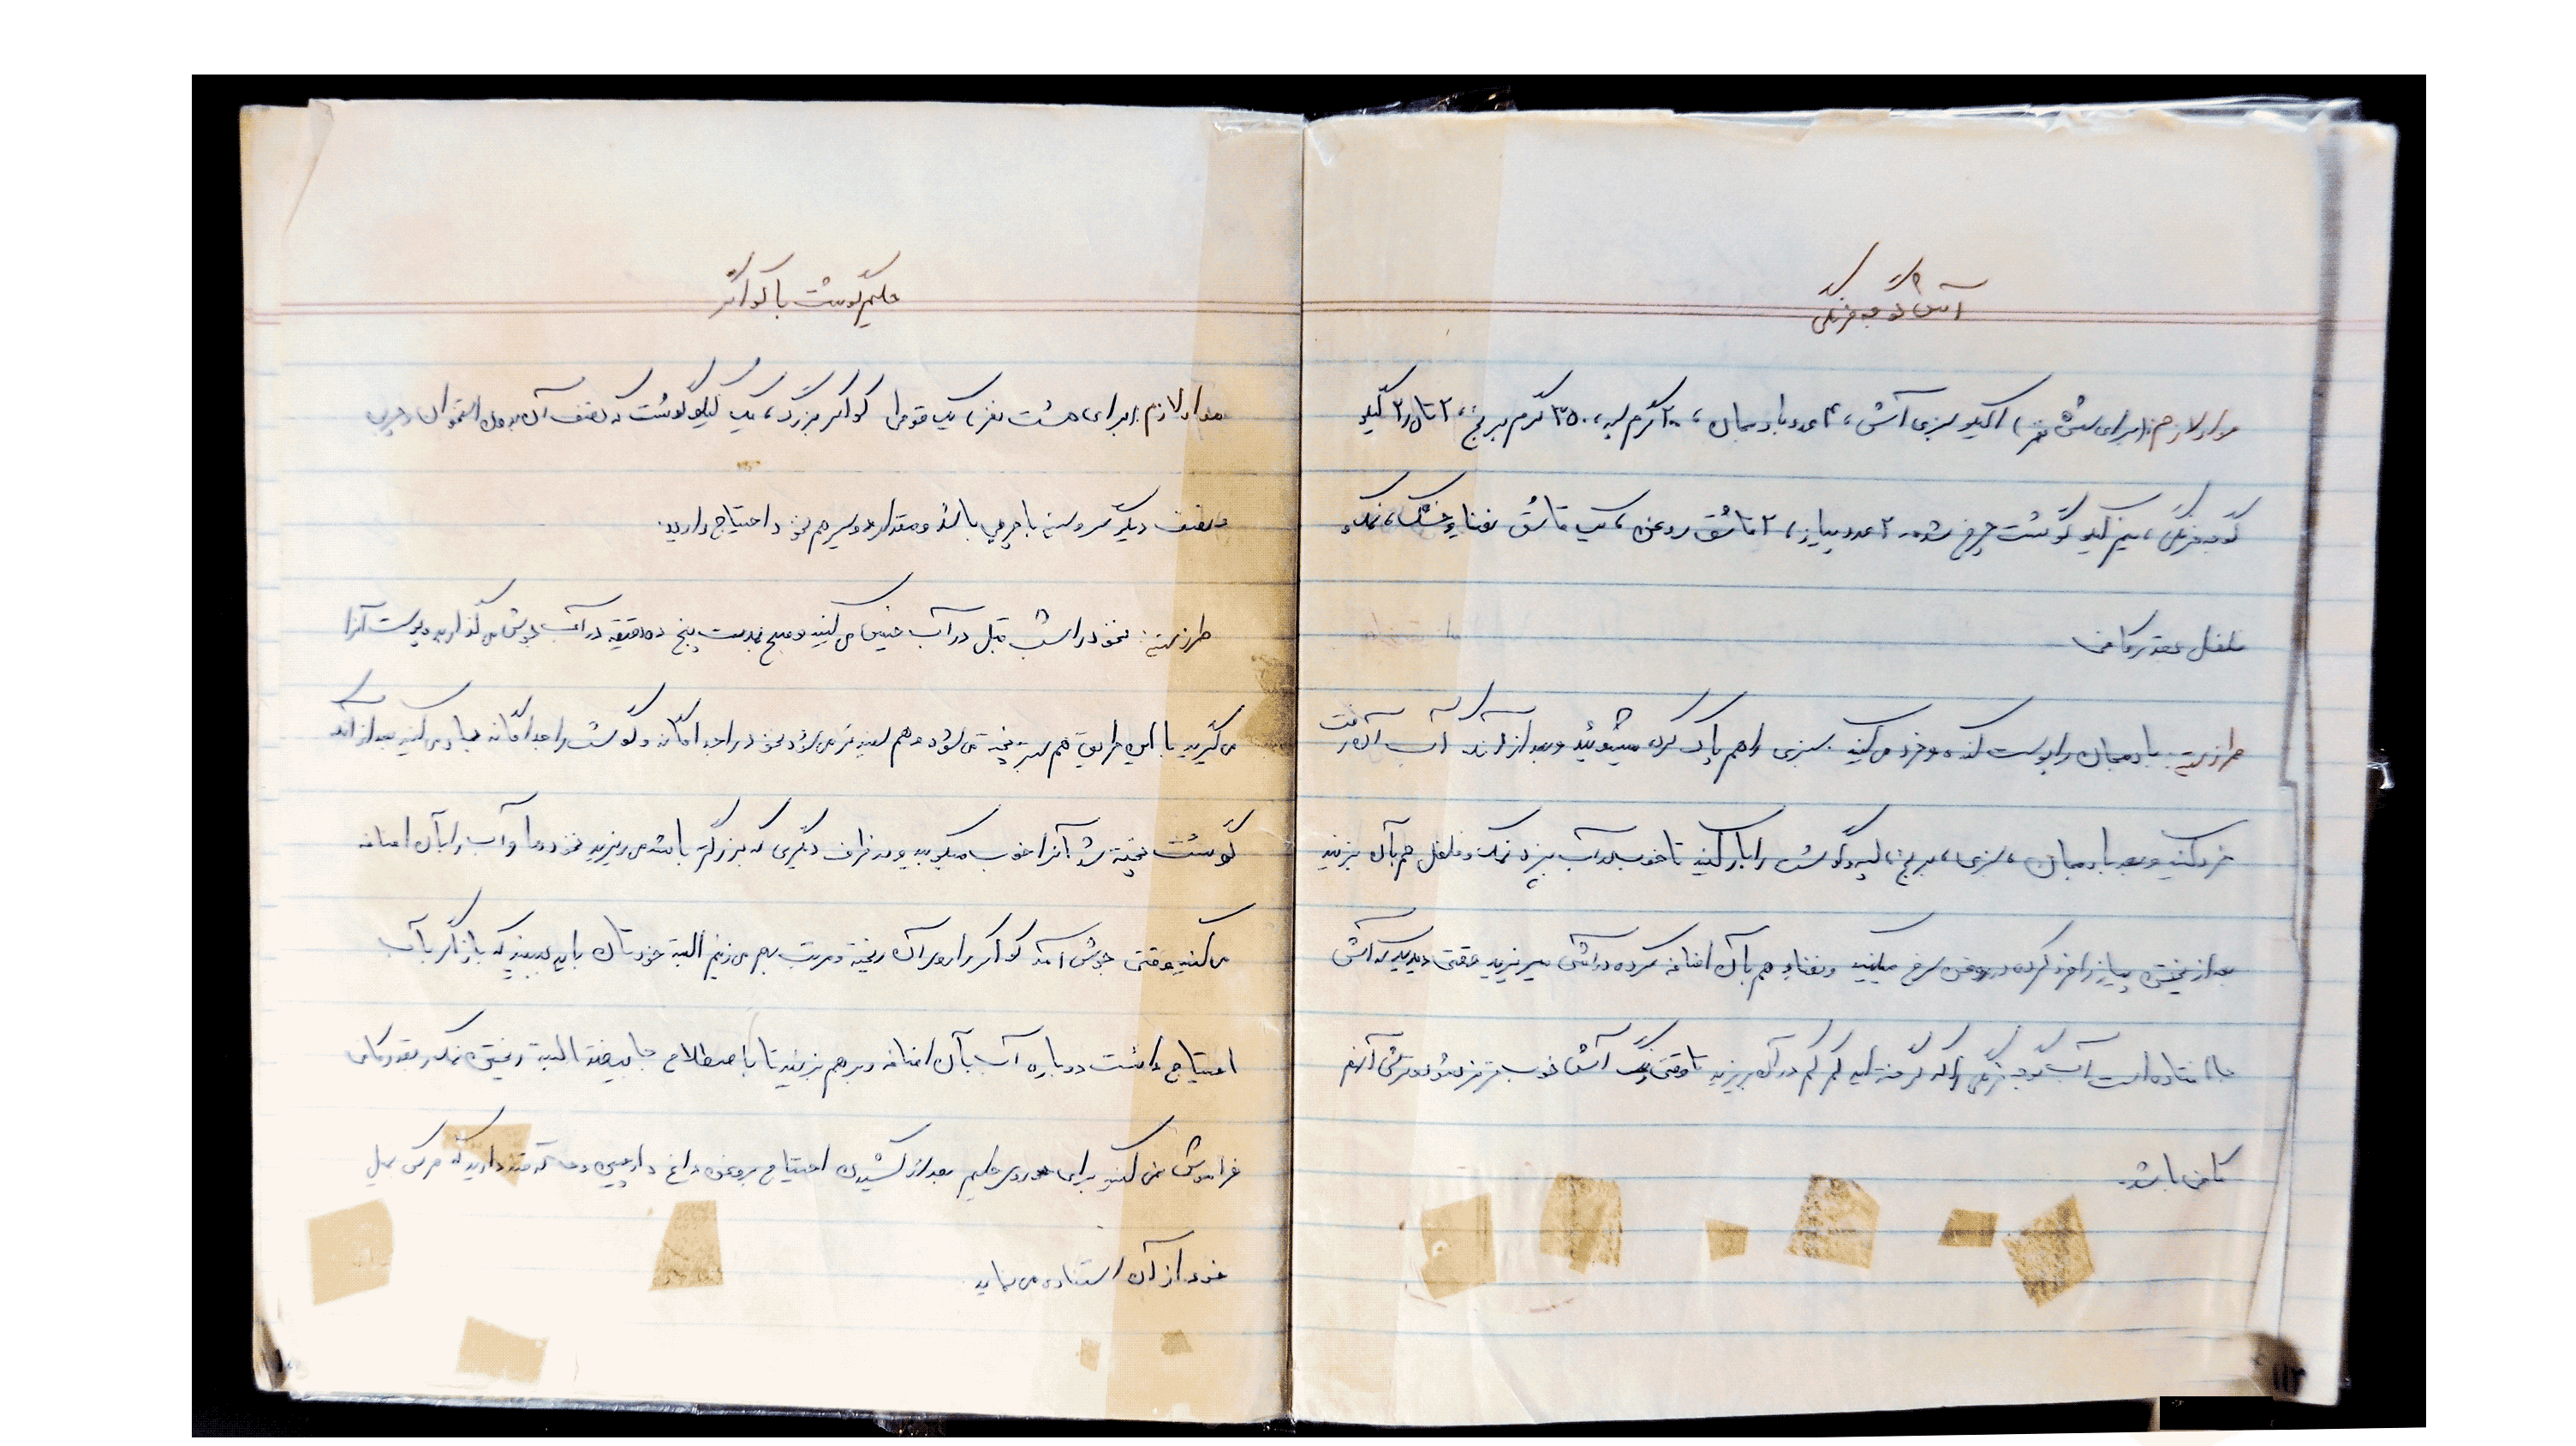 آش گوجه فرنگی
مواد لازم: (برای شش نفر) ۱ کیلو سبزی آش، ۴ عدد بادمجان، ۲۰۰ گرم لپه، ۳۵۰ گرم برنج، ۲ تا ۳ کیلو
گوجه فرنگی، نیم کیلو گوشت چرخ شده، ۲ عدد پیاز، ۲ قاشق روغن، یک قاشق نعناع خشک، نمک و
فلفل بقدر کافی
طرز تهیه: بادمجان را پوست کنده و خرد می کنید سبزی را هم پاک کرده میشوئید و بعد از آنکه آب آن رفت
خرد کنید و بعد بادمجان، سبزی، برنج، لپه و گوشت را بار کنید تا خوب در آب بپزد نمک و فلفل هم بآن بزنید
بعد از پختن پیاز را خرد کرده در روغن سرخ میکنید و نعناع هم بآن اضافه کرده در آش میریزید وقتی دیدید که آش
جا افتاده است آب گوجه فرنگی را که گرفته اید کم کم در آن بریزید تا وقتی رنگ آش خوب قرمز شود و ترشی آنهم
کافی باشد.
حلیم گوشت با کواکر
مواد لازم: برای هشت نفر، یک قوطی کواکر بزرگ، یک کیلو گوشت که نصف آن بدون استخوان و چربی
و نصف دیگر سر و سینه با چربی باشد و مقدار دو سیر هم نخود احتیاج دارید.
طرز تهیه: نخود را شب قبل در آب خیس می کنید و صبح بمدت پنج دقیقه در آب جوش می گذارید و پوست آنرا
می گیرید با این طریق هم بهتر پخته می شود و هم لذیذتر می شود نخود را جداگانه و گوشت را جداگانه بار می کنید بعد از آنکه
گوشت پخته شد آنرا خوب میکوبید و در ظرف دیگری که بزرگتر باشد می ریزید نخودها و آب را بآن اضافه
می کنید وقتی جوش آمد کواکر را روی آن ریخته و مرتب بهم می زنیم البته خودتان باید ببینید که باز اگر بآب
احتیاج داشت دوباره آب بآن اضافه و برهم بزنید تا باصطلاح جا بیفتد البته ریختن نمک بقدر کافی
فراموش نمی کنید برای روی حلیم بعد از کشیدن احتیاج بروغن داغ دارچین و خاکه قند دارید که هرکس بمیل
خود از آن استفاده می نماید